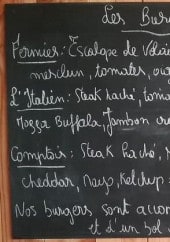 Les Bur
Fermier: Escalope de Volai
mesclun, tomates, oi
L'Italien: Steak haché, toma
Mozza Buffala, Jambon cru
Comptoir: Steak haché,
cheddar, Mayo, Ketchup
Nos burgers sont accom
et d'un bol